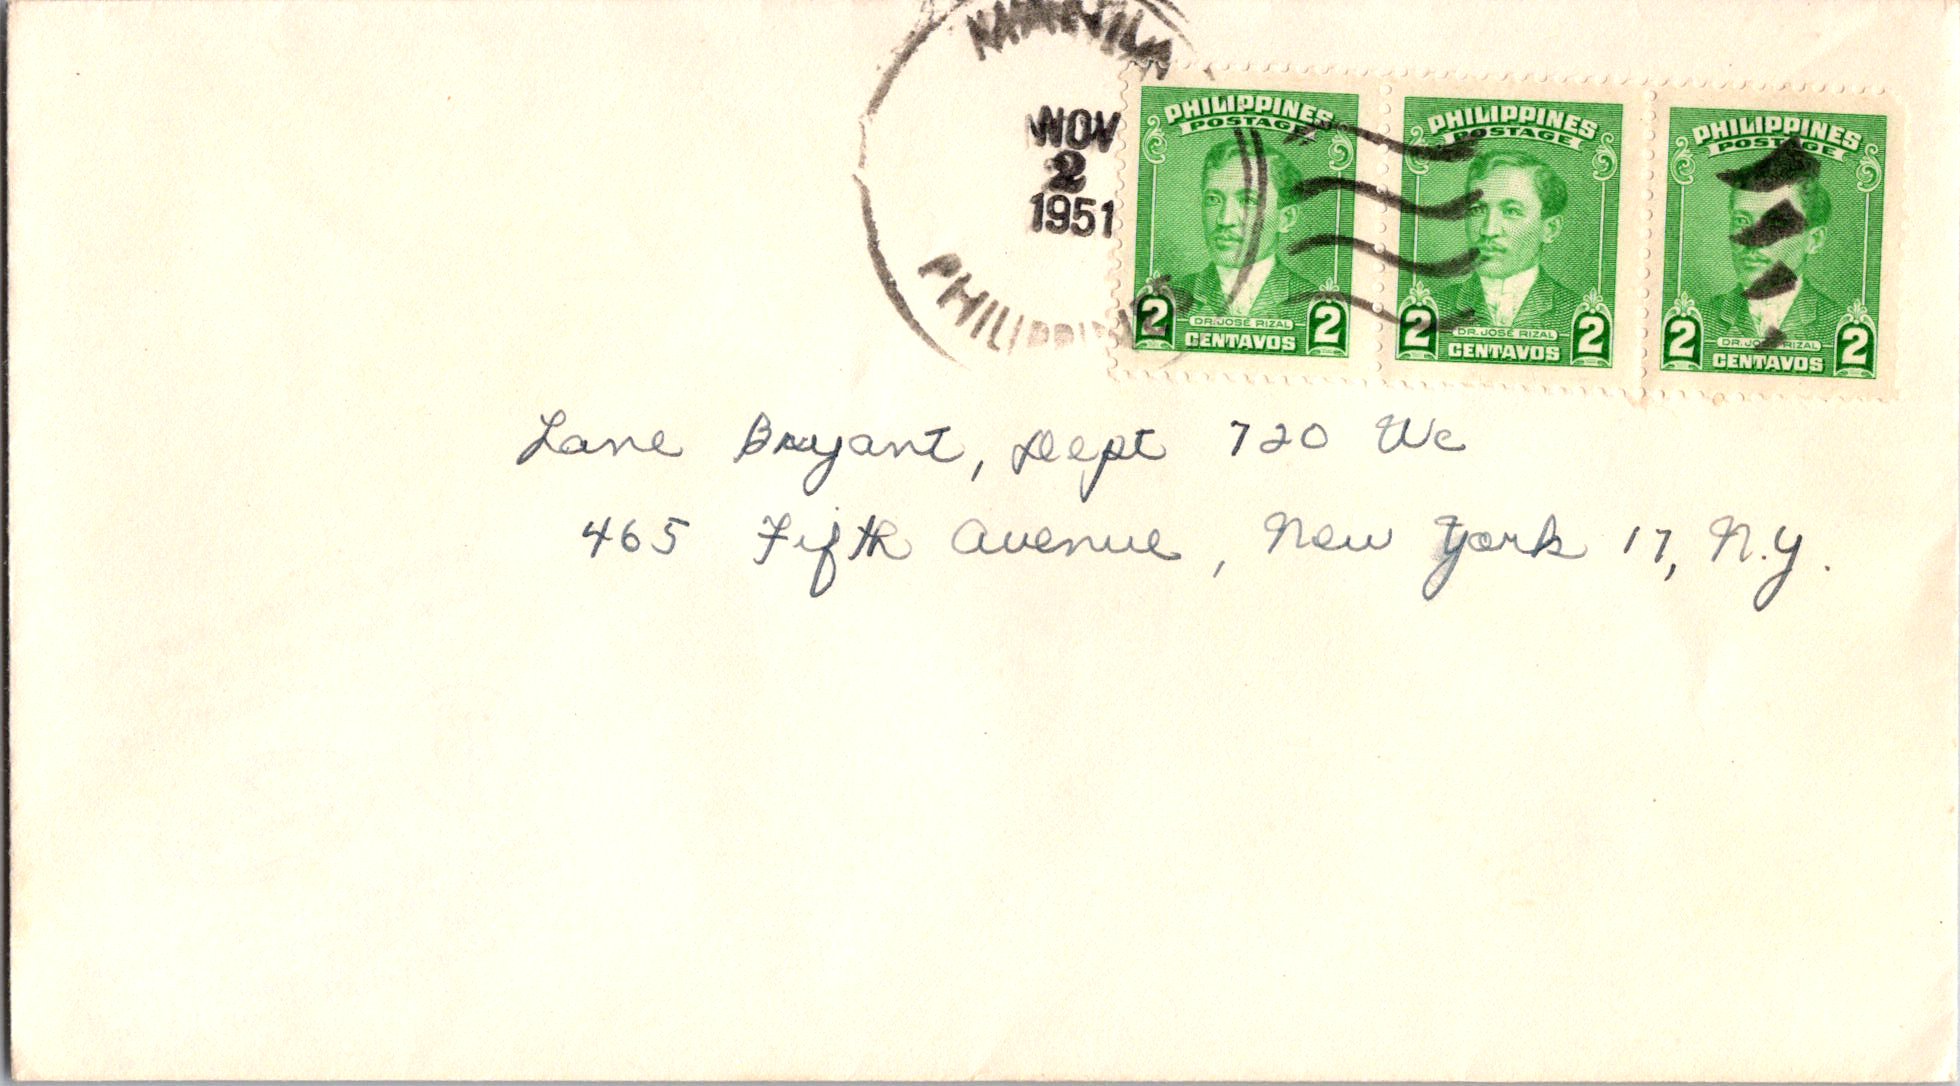 MANILA
NOV
2
1951
PHILIPPINES
PHILIPPINES
POSTAGE
2
DR. JOSÉ RIZAL
CENTAVOS
2
PHILIPPINES
POSTAGE
2
DR. JOSÉ RIZAL
CENTAVOS
2
PHILIPPINES
POSTAGE
2
DR. JOSÉ RIZAL
CENTAVOS
2
Lane Bryant, Dept 720 We
465 Fifth Avenue, New York 17, N.Y.